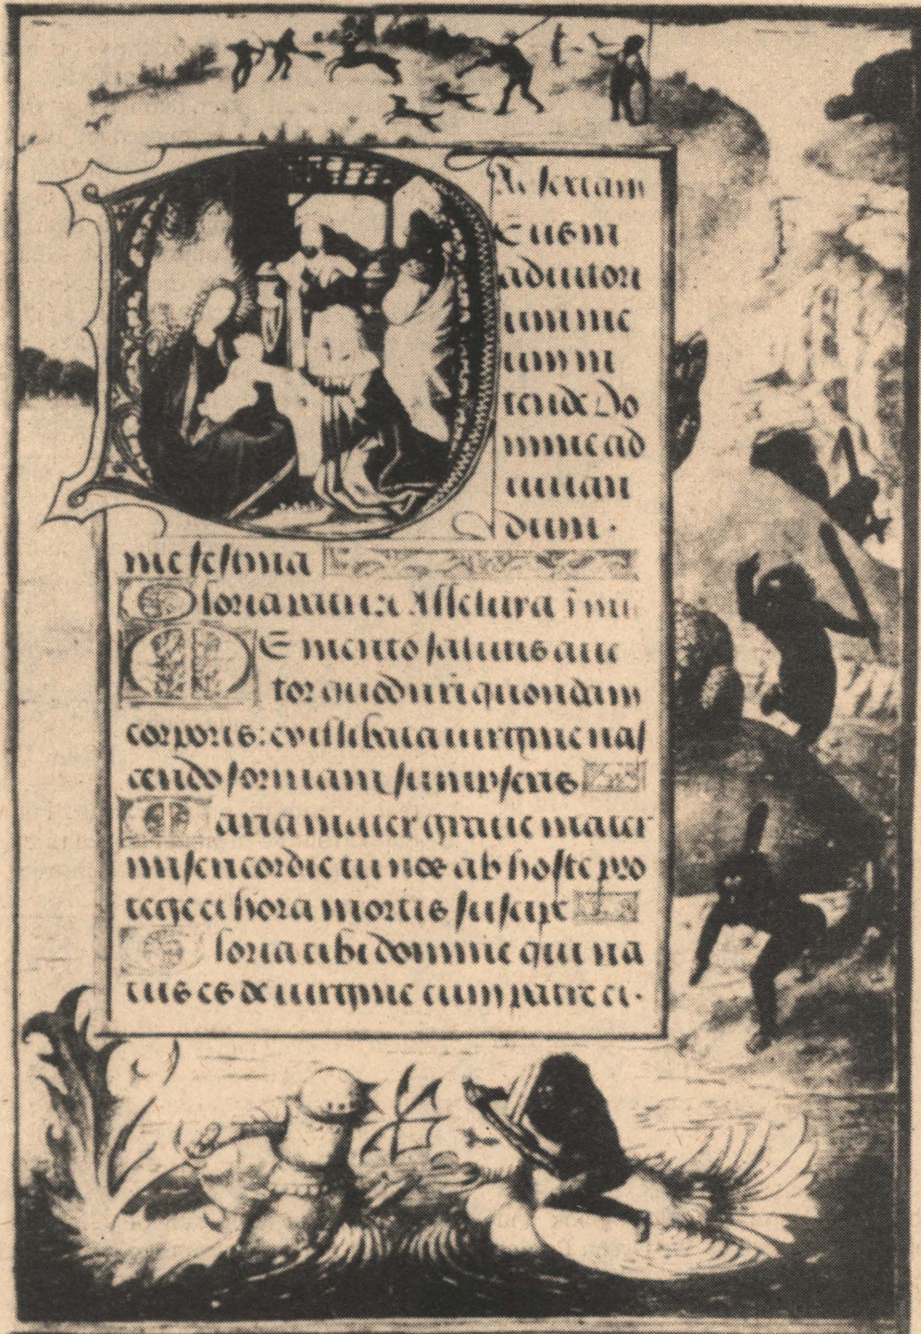 Ad sextam
Eus in
adiutori
um me
um in
tende Do
mine ad
iuuan
dum·
me festina
Gloria patri
Memento salutis auc
tor quod nr̄i quondam
corporis: ex illibata uirgine nas
cendo formam sumpseris
Maria mater gratie mater
misericordie tu nos ab hoste pro
tege et hora mortis suscipe
Gloria tibi domine qui na
tus es de uirgine cum patre et·